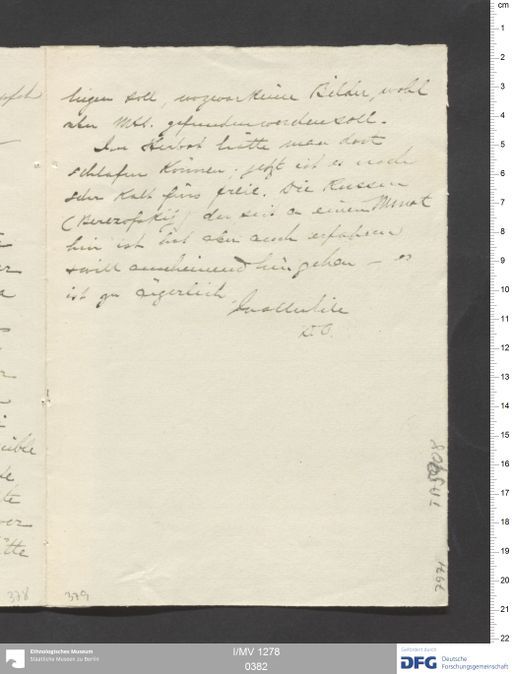 liegen soll, wozwar keine Bilder, wohl
aber Mss. gefunden worden soll.
Im Herbst hätte man dort
schlafen können; jetzt ist es noch
sehr kalt fürs freie. Die Russen
(Berezofskij) der seit ca einem Monat
hier ist hat aber auch erfahren
+ will anscheinend hingehen – es
ist zu ärgerlich.
In aller Eile
378
379
TA 5908
7971
Ethnologisches Museum
Staatliche Museen zu Berlin
I/MV 1278
0382
Gefördert durch
DFG Deutsche
Forschungsgemeinschaft
cm
1
2
3
4
5
6
7
8
9
10
11
12
13
14
15
16
17
18
19
20
21
22